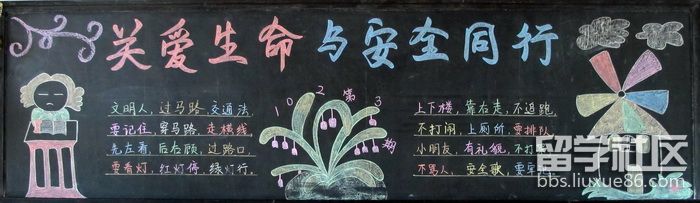 关爱生命与安全同行
文明人,过马路,交通法,
要记住,穿马路,走横线,
先左看,后右顾,过路口,
要看灯,红灯停,绿灯行,
102第3期
上下楼,靠右走,不追跑,
不打闹,上厕所,要排队,
小朋友,有礼貌,不打
不骂人,安全歌,要牢
留学社区
bbs.liuxue86.com